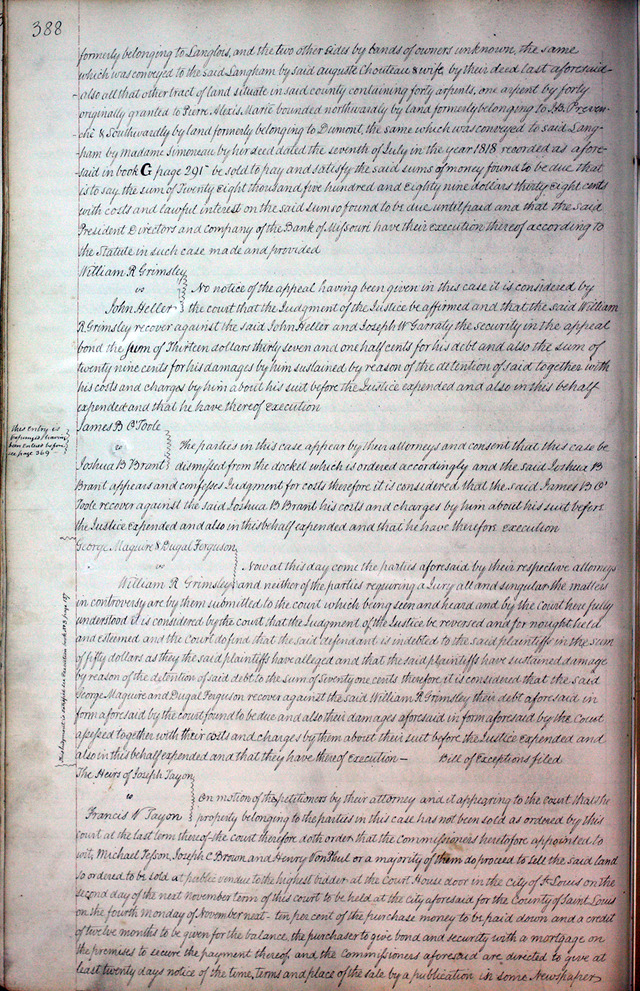 388
formerly belonging to Langlois, and the two other sides by bands of owners unknown, the same
which was conveyed to the said Langham by said Auguste Chouteau & wife, by their deed last aforesaid
also all that other tract of land situate in said county containing forty arpents, one arpent by forty
originally granted to Pierre Alexis Marie bounded northwardly by land formerly belonging to J.B. Proven-
ché & Southwardly by land formerly belonging to Dumont, the same which was conveyed to said Lang-
ham by madame Simoneau by her deed dated the seventh of July in the year 1818 recorded as afore-
said in book G page 291 be sold to pay and satisfy the said sums of money found to be due that
is to say the sum of Twenty Eight thousand five hundred and Eighty nine dollars thirty Eight cents
with costs and lawful interest on the said sum so found to be due until paid and that the said
President Directors and company of the Bank of Missouri have their execution thereof according to
the Statute in such case made and provided
William R Grimsley
vs No notice of the appeal having been given in this case it is considered by
John Heller the court that the Judgment of the Justice be affirmed and that the said William
R Grimsley recover against the said John Heller and Joseph W Garraty the security in the appeal
bond the sum of Thirteen dollars thirty seven and one half cents for his debt and also the sum of
twenty nine cents for his damages by him sustained by reason of the detention of said together with
his costs and charges by him about his suit before the Justice expended and also in this behalf
expended and that he have thereof execution
this entry is
expunged having
been entered before
see page 369
James B O'Toole
vs The parties in this case appear by their attorneys and consent that this case be
Joshua B Brant dismissed from the docket which is ordered accordingly and the said Joshua B
Brant appears and confesses Judgment for costs therefore it is considered that the said James B O'
Toole recover against the said Joshua B Brant his costs and charges by him about his suit before
the Justice expended and also in this behalf expended and that he have therefore execution
George Maguire & Dugal Ferguson
vs Now at this day come the parties aforesaid by their respective attorneys
William R Grimsley and neither of the parties requiring a Jury all and singular the matters
in controversy are by them submitted to the court which being seen and heard and by the court here fully
understood it is considered by the court that the Judgment of the Justice be reversed and for nought held
and esteemed and the Court do find that the said defendant is indebted to the said plaintiffs in the sum
of fifty dollars as they the said plaintiffs have alleged and that the said plaintiffs have sustained damage
by reason of the detention of said debt to the sum of Seventy one cents therefore it is considered that the said
George Maguire and Dugal Ferguson recover against the said William R Grimsley their debt aforesaid in
form aforesaid by the court found to be due and also their damages aforesaid in form aforesaid by the Court
assessed together with their costs and charges by them about their suit before the Justice expended and
also in this behalf expended and that they have thereof execution — Bill of Exceptions filed
This Judgment is satisfied see Execution
The Heirs of Joseph Tayon
vs On motion of the petitioners by their attorney and it appearing to the court that the
Francis V Tayon property belonging to the parties in this case has not been sold as ordered by this
court at the last term thereof the court therefore doth order that the commissioners heretofore appointed to
wit, Michael Tesson, Joseph C Brown, and Henry Von Phul or a majority of them do proceed to sell the said land
so ordered to be sold at public vendue to the highest bidder at the Court House door in the city of St Louis on the
second day of the next November term of this court to be held at the city aforesaid for the County of Saint Louis
on the fourth monday of November next - ten per cent of the purchase money to be paid down and a credit
of twelve months to be given for the balance, the purchaser to give bond and security with a mortgage on
the premises to secure the payment thereof, and the Commissioners aforesaid are directed to give at
least twenty days notice of the time, terms and place of the sale by a publication in some Newspaper